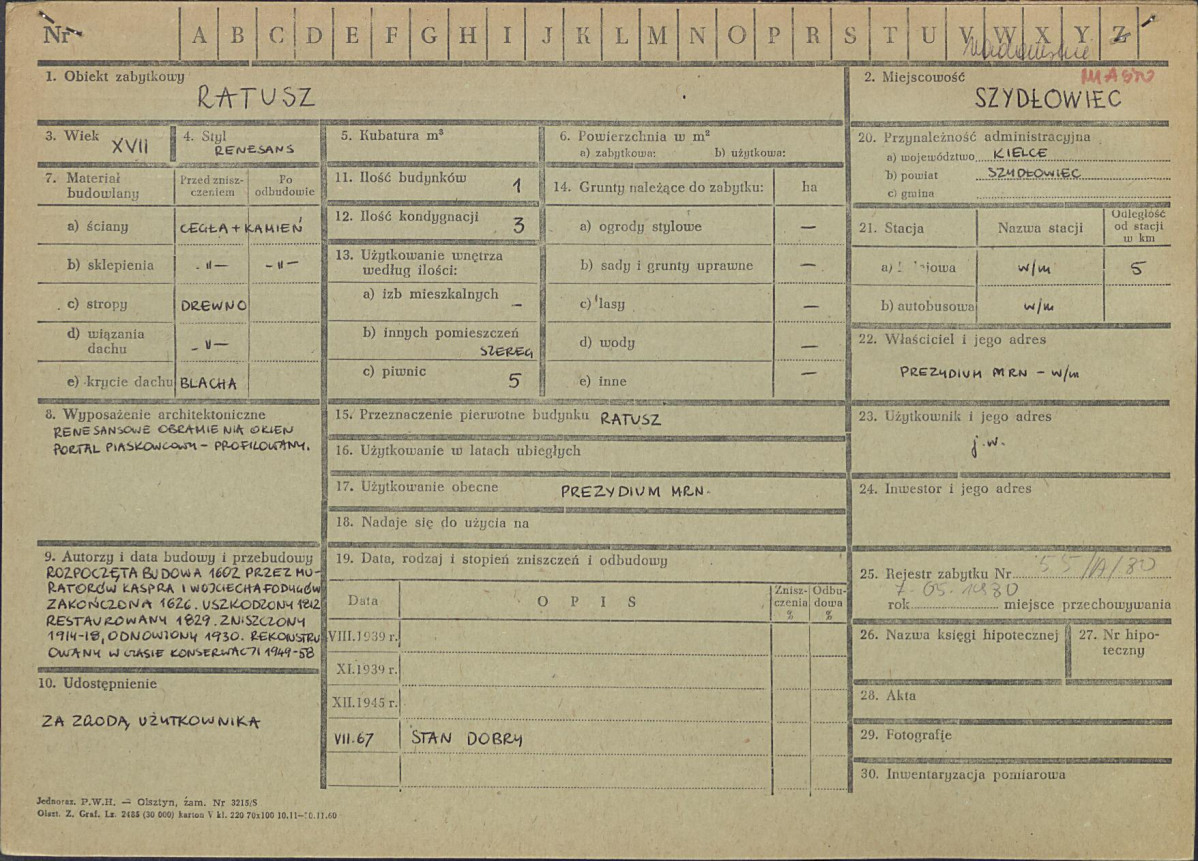 Nr A B C D E F G H I J K L M N O P R S T U V W X Y Z
1. Obiekt zabytkowy
RATUSZ
2. Miejscowość
MIASTO
SZYDŁOWIEC
3. Wiek XVII
4. Styl
RENESANS
5. Kubatura m³
6. Powierzchnia w m²
a) zabytkowa: b) użytkowa:
20. Przynależność administracyjna
a) województwo KIELCE
b) powiat SZYDŁOWIEC
c) gmina
7. Materiał budowlany
Przed znisz-
czeniem
Po
odbudowie
a) ściany CEGŁA + KAMIEŃ
b) sklepienia - " — - " —
c) stropy DREWNO
d) wiązania
dachu - " —
e) krycie dachu BLACHA
11. Ilość budynków 1
12. Ilość kondygnacji 3
13. Użytkowanie wnętrza
według ilości:
a) izb mieszkalnych —
b) innych pomieszczeń
SZEREG
c) piwnic 5
14. Grunty należące do zabytku: ha
a) ogrody stylowe —
b) sady i grunty uprawne —
c) lasy —
d) wody —
e) inne —
21. Stacja Nazwa stacji
Odległość
od stacji
w km
a) w/m 5
b) autobusowa w/m
22. Właściciel i jego adres
PREZYDIUM MRN - w/m
8. Wyposażenie architektoniczne
RENESANSOWE OBRAMIENIA OKIEN
PORTAL PIASKOWCOWY - PROFILOWANY.
15. Przeznaczenie pierwotne budynku RATUSZ
16. Użytkowanie w latach ubiegłych
17. Użytkowanie obecne PREZYDIUM MRN.
18. Nadaje się do użycia na
23. Użytkownik i jego adres
j.w.
24. Inwestor i jego adres
9. Autorzy i data budowy i przebudowy
ROZPOCZĘTA BUDOWA 1602 PRZEZ MU-
RATORÓW KASPRA I WOJCIECHA FODYGÓW
ZAKOŃCZONA 1626. USZKODZONY 1812
RESTAUROWANY 1829. ZNISZCZONY
1914-18, ODNOWIONY 1930. REKONSTRU
OWANY W CZASIE KONSERWACJI 1949-58
10. Udostępnienie
ZA ZGODĄ UŻYTKOWNIKA
19. Data, rodzaj i stopień zniszczeń i odbudowy
Data O P I S
Znisz-
czenia
%
Odbu-
dowa
%
VIII.1939 r.
XI.1939 r.
XII.1945 r.
VII.67 STAN DOBRY
25. Rejestr zabytku Nr 55/A/80
7.05.1980
rok miejsce przechowywania
26. Nazwa księgi hipotecznej
27. Nr hipo-
teczny
28. Akta
29. Fotografje
30. Inwentaryzacja pomiarowa
Jednoraz. P.W.H. — Olsztyn, zam. Nr 3215/S
Olszt. Z. Graf. Lz. 2485 (30 000) karton V kl. 220 70x100